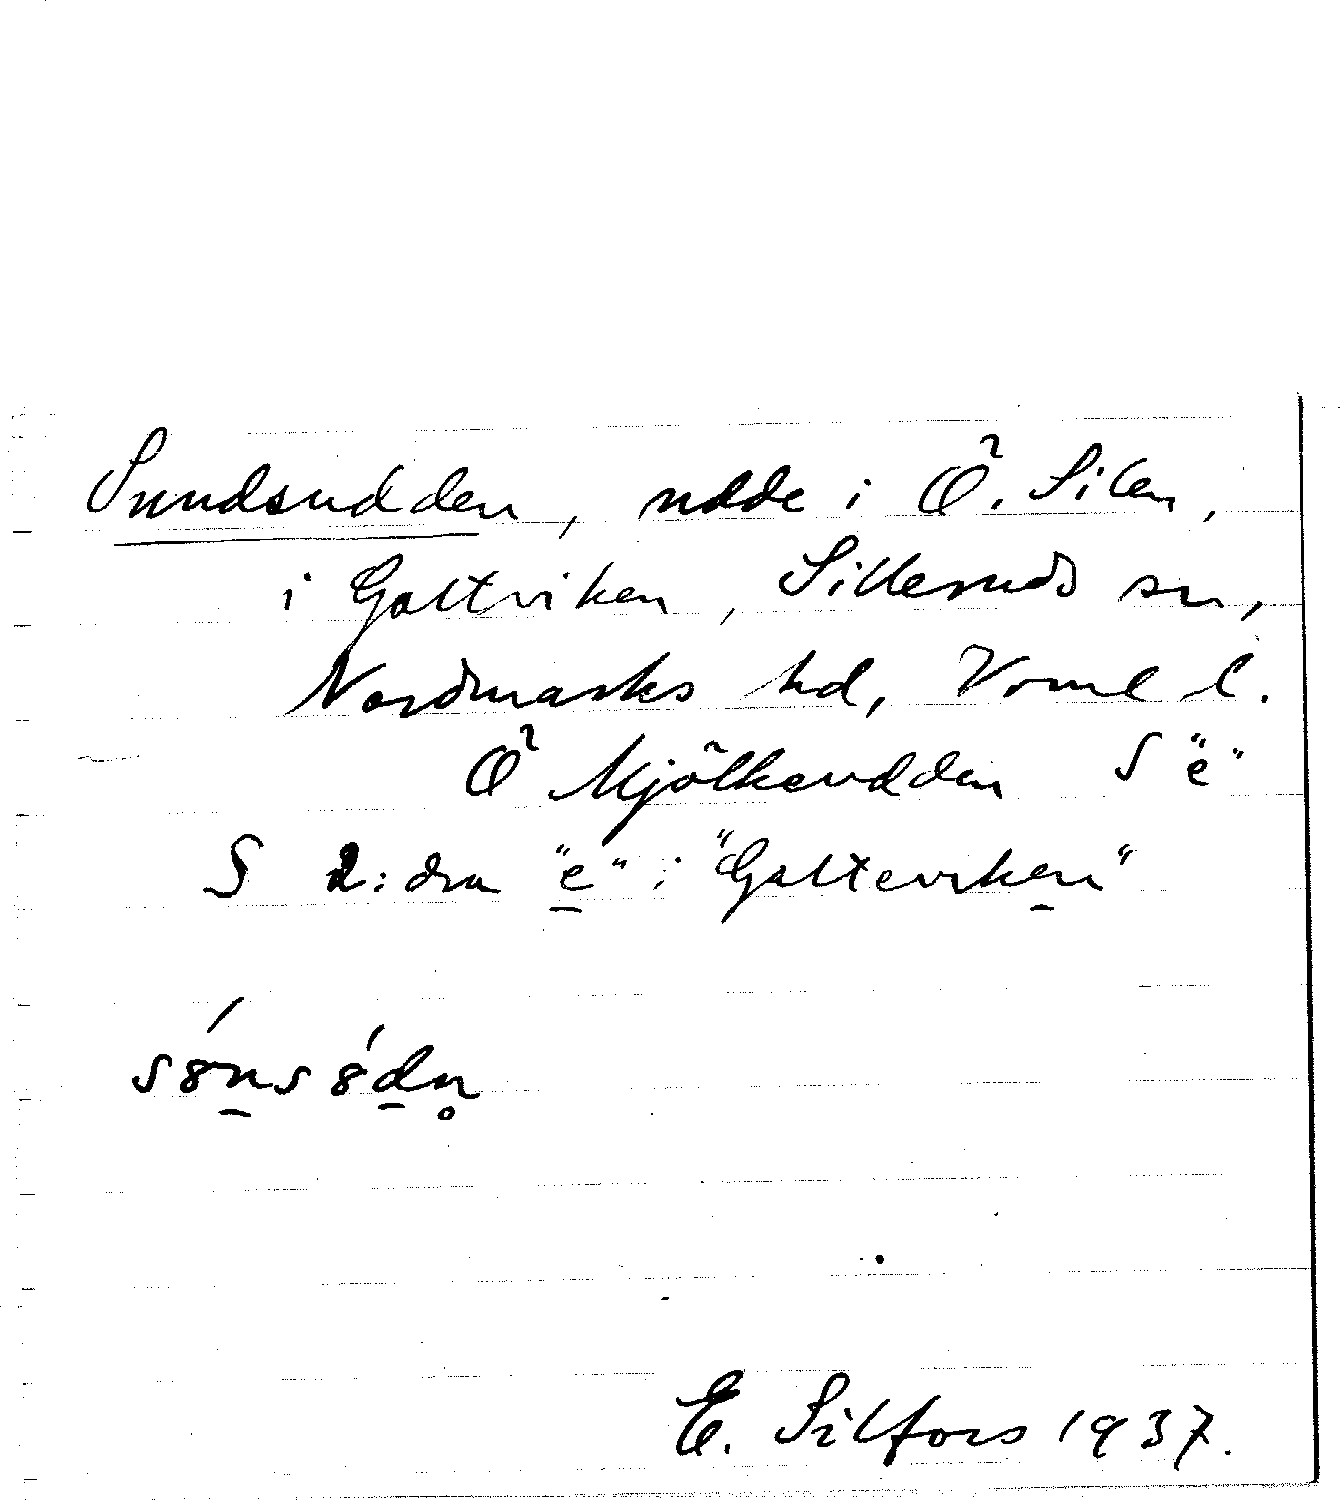 Sundsudden, udde i Ö. Silen,
i Galtviken, Silleruds sn,
Nordmarks hd, Vrml l.
Ö Mjölkeudden S "e"
S 2:dra "e" i "Galteviken"
sȣ́nsȣ́dn̥
E. Silfors 1937.